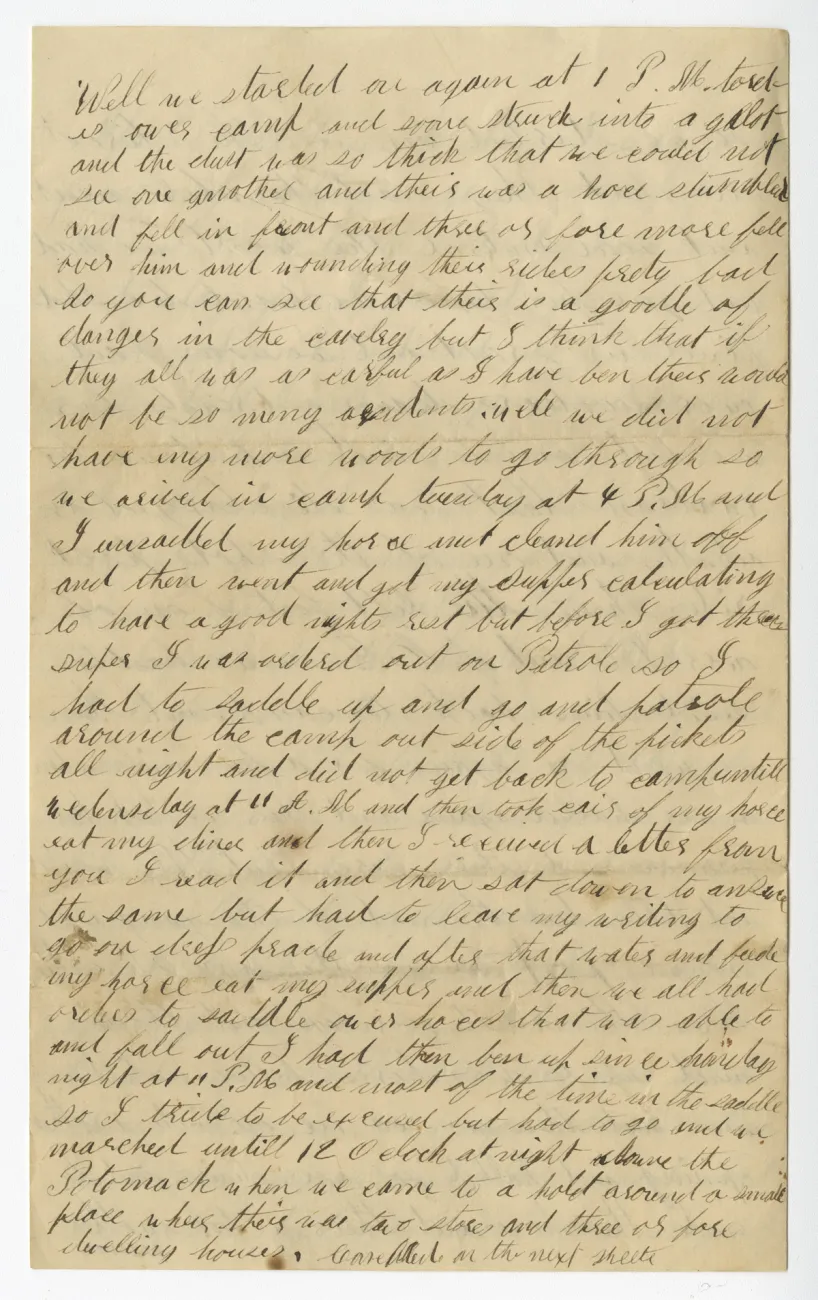 Well we started on again at 1 P. M. tords
is ower camp and soone struck into a gallot
and the dust was so thick that we could not
see one another and theis was a hoce stumbled
and fell in frount and three or fore more fell
over him and wounding their rides prety bad
so you can see that theis is a goodle of
danger in the cavelry but I think that if
they all was as carful as I have ben theis would
not be so meny acsidents. well we did not
have any more woods to go through so
we arived in camp tuesday at 4 P.M and
I unsadled my horce and cleand him off
and then went and got my supper calculating
to have a good nights rest but before I got
super I was orderd out on Patrole so I
had to saddle up and go and patrole
around the camp out side of the pickets
all night and did not get back to camp untill
wedensday at 11 A. M and then took cair of my horce
eat my diner and then I receeved a letter from
you I read it and then sat down to
the same but had to leave my writing to
go on dress prade and after that water and feede
my horce eat my supper and then we all had
orders to saddle ower hoces that was able to
and fall out I had then ben up since
night at 11 P.M and most of the time in the saddle
so I tride to be excused but had to go and we
marched untill 12 O clock at night the
Potomack when we came to a holt around a small
place whers theis was two stores and three or fore
dwelling houses. on the next sheete